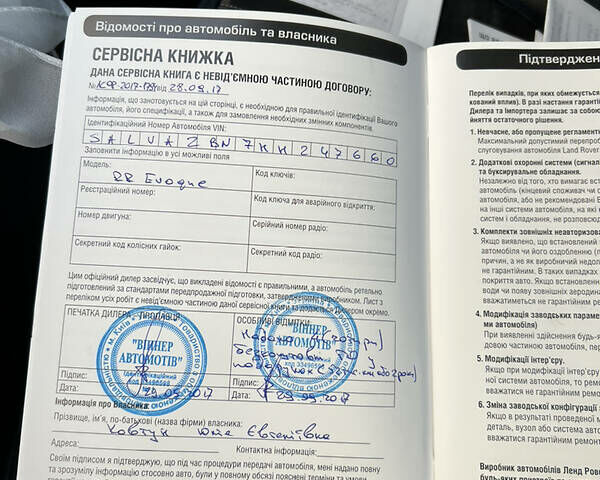 Відомості про автомобіль та власника
СЕРВІСНА КНИЖКА
ДАНА СЕРВІСНА КНИГА Є НЕВІД'ЄМНОЮ ЧАСТИНОЮ ДОГОВОРУ:
від 28.09.17
Інформація, що занотовується на цій сторінці, є необхідною для правильної ідентифікації Вашого
автомобіля, його специфікації, а також для замовлення необхідних змінних компонентів.
Ідентифікаційний Номер Автомобіля VIN:
SALVA2BN7HH247660
Заповнити інформацію в усі можливі поля
Модель: RR Evoque
Код ключів:
Реєстраційний номер:
Код ключа для аварійного відкриття:
Номер двигуна:
Серійний номер радіо:
Секретний код колісних гайок:
Секретний код радіо:
Цим офіційний дилер засвідчує, що викладені відомості є правильними, а автомобіль ретельно
підготовлений за стандартами передпродажної підготовки, затвердженими виробником. Лист з
переліком усіх робіт є невід'ємною частиною даної сервісної книги та додається окремо.
ПЕЧАТКА ДИЛЕРА - ПРОДАВЦЯ
ОСОБЛИВІ ВІДМІТКИ:
"ВІННЕР
АВТОМОТІВ"
Ідентифікаційний
код 33496598
"ВІННЕР
АВТОМОТІВ"
Підпис:
Дата: 29.09.2017
Підпис:
Дата: 29.09.2017
Інформація про Власника:
Прізвище, ім'я, по-батькові (назва фірми) власника:
Ковтун Юлія Євгеніївна
Адреса:
Контактна інформація:
Своїм підписом я підтверджую, що під час процедури передачі автомобіля, мені надано повну
та зрозумілу інформацію стосовно авто, були у повному обсязі пояснені терміни та умови
Підтверджен
Перелік випадків, при яких обмежується
кований вплив). В разі настання гарантій
Дилера та Імпортера залишає за собою
йняття остаточного рішення.
1. Невчасне, або пропущене регламентн
Максимальний допустимий перепробі
слуговування автомобіля Land Rover
2. Додаткові охоронні системи (сигналі
та буксирувальне обладнання.
Незалежно від того, хто вимагає вста
автомобіль (кінцевий споживач чи с
автомобіля, або не рекомендовані В
на інші системи автомобіля, на які н
систем і обладнання, не розповсюд
3. Комплекти зовнішніх неавторизован
Якщо виявлено, що встановлений
автомобіля чи його оздоблення (п
причина, а не як виробничий недол
не гарантійним. В таких випадках
покриття авто. Якщо встановленн
води чи появу зовнішніх аеродина
вважатиметься не гарантійним ре
4. Модифікація заводських параме
ми автомобіля)
При виявленні здійснення будь-я
довою частиною автомобіля, пер
5. Модифікації інтер'єру.
Якщо при модифікації інтер'єру
ної системи автомобіля, то ремо
вважатися не ремонтом не гаран
6. Зміна заводської конфігурації
Якщо в результаті проведеної м
деталь, вузол або система авто
вважатися ремонтом гарантійн
Виробник автомобілів Ленд Рове